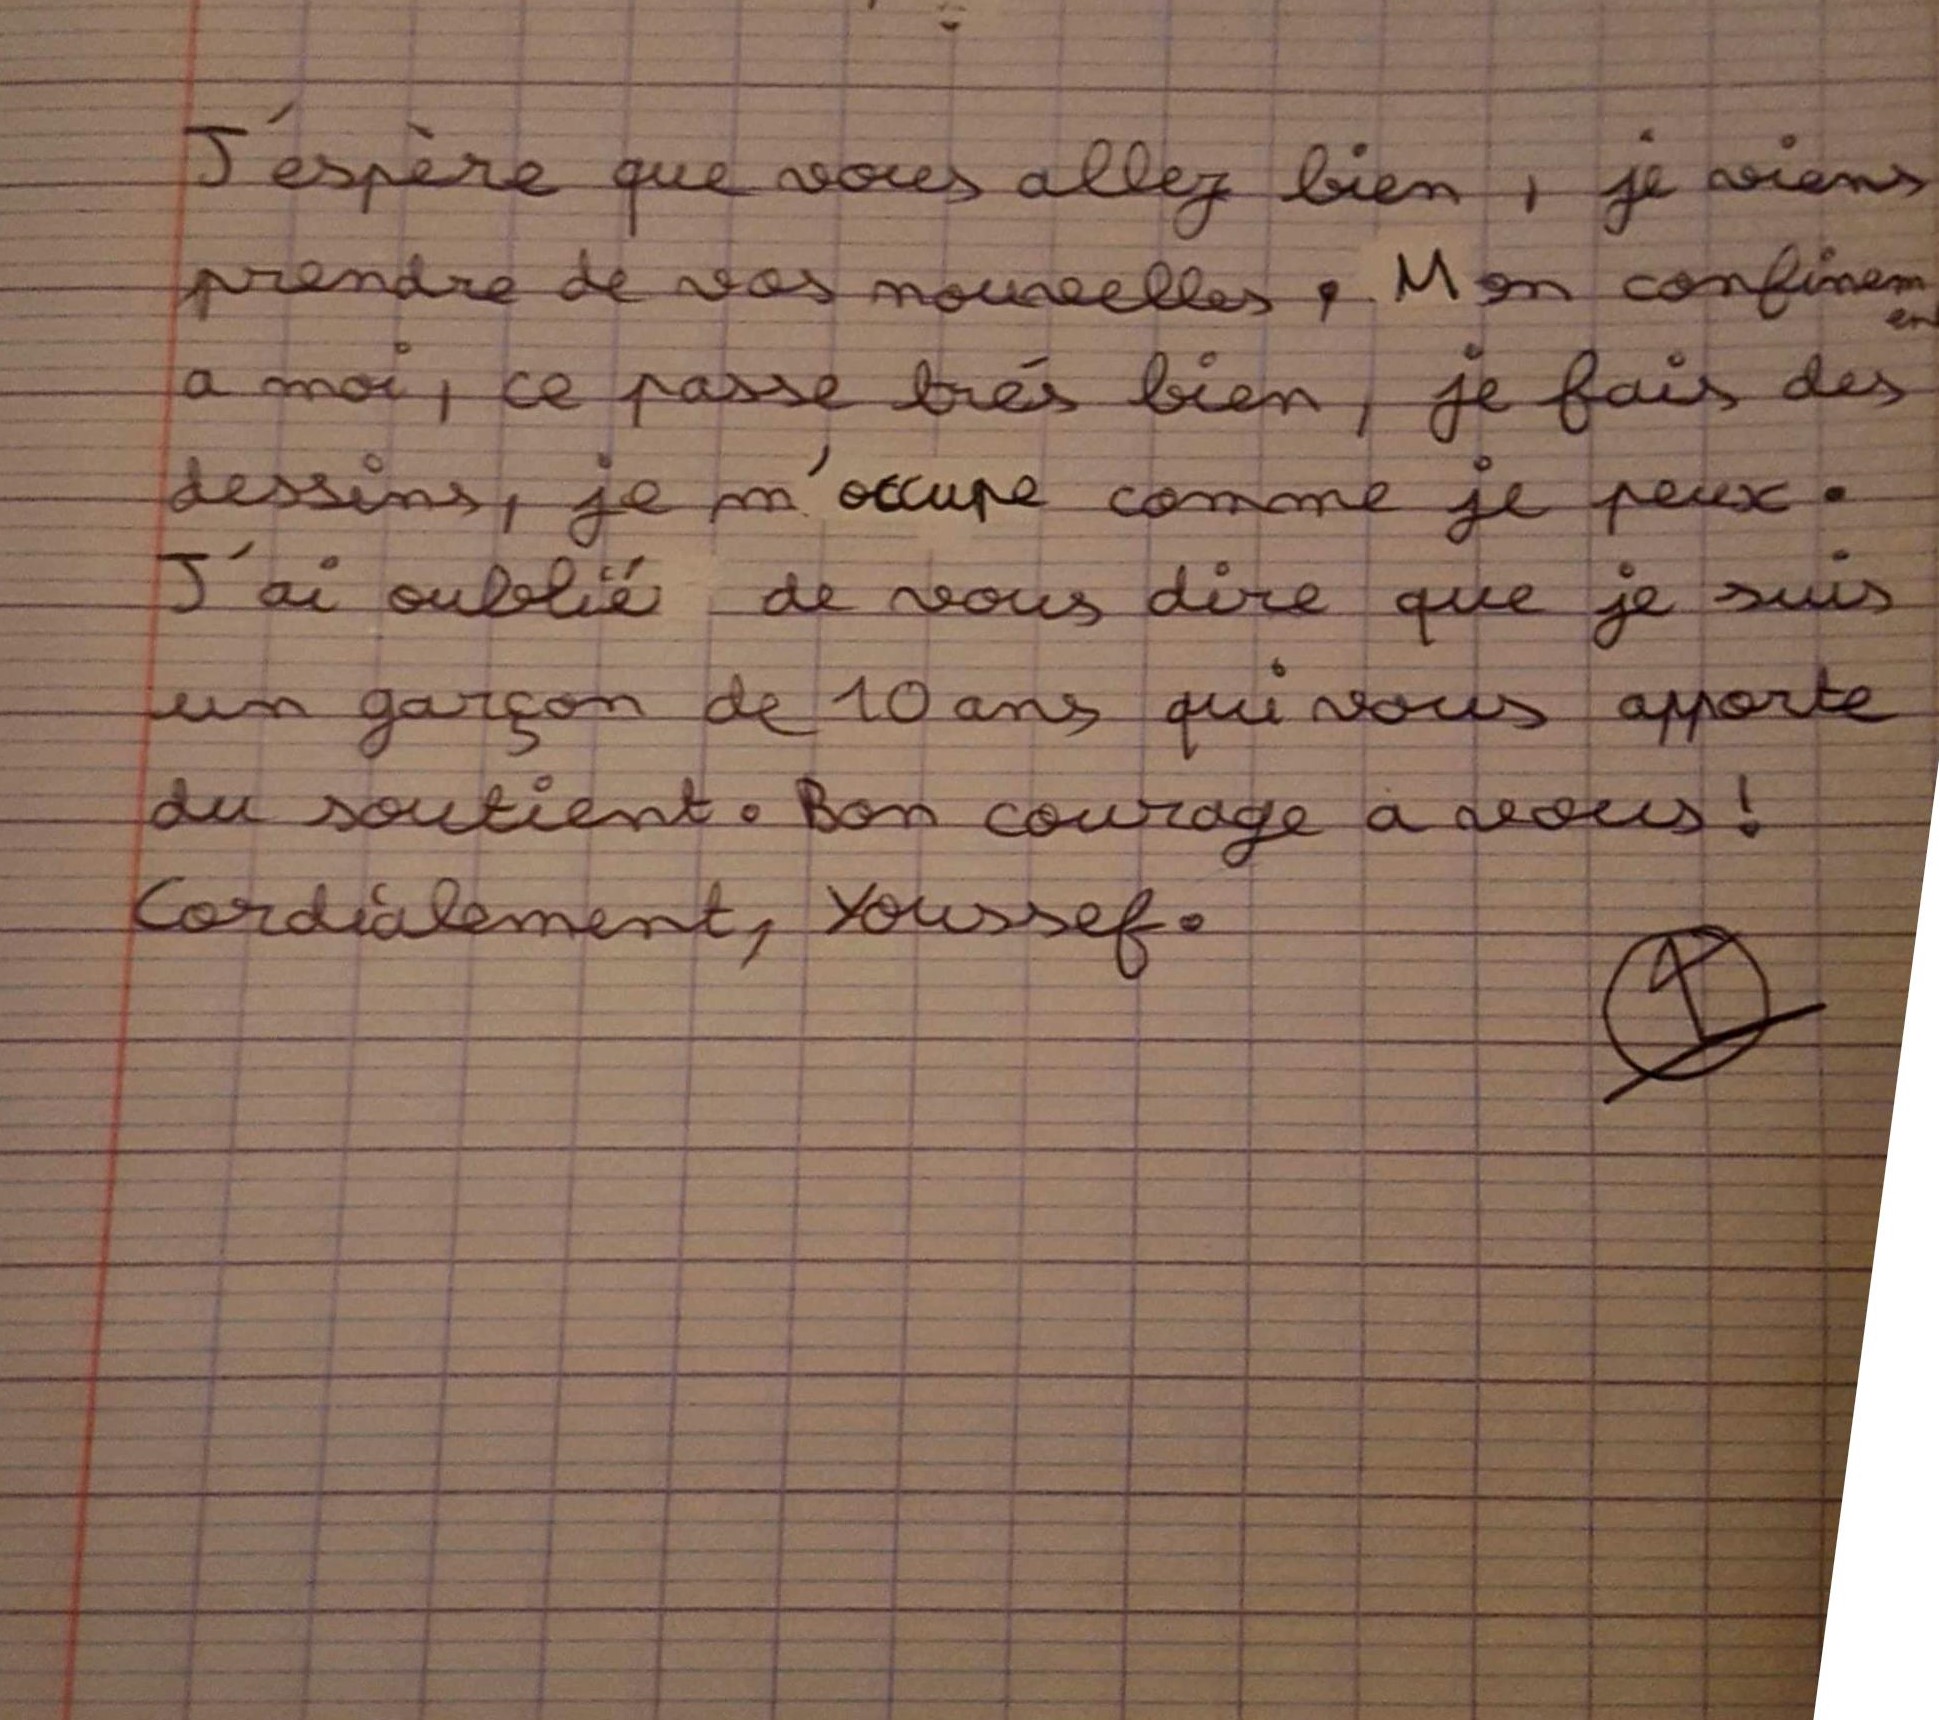 J'espère que vous allez bien, je viens
prendre de vos nouvelles. Mon confinem
en
a moi, ce passe trés bien, je fais des
dessins, je m'occupe comme je peux.
J'ai oublié de vous dire que je suis
un garçon de 10 ans qui vous apporte
du soutient. Bon courage a vous!
Cordialement, Youssef.